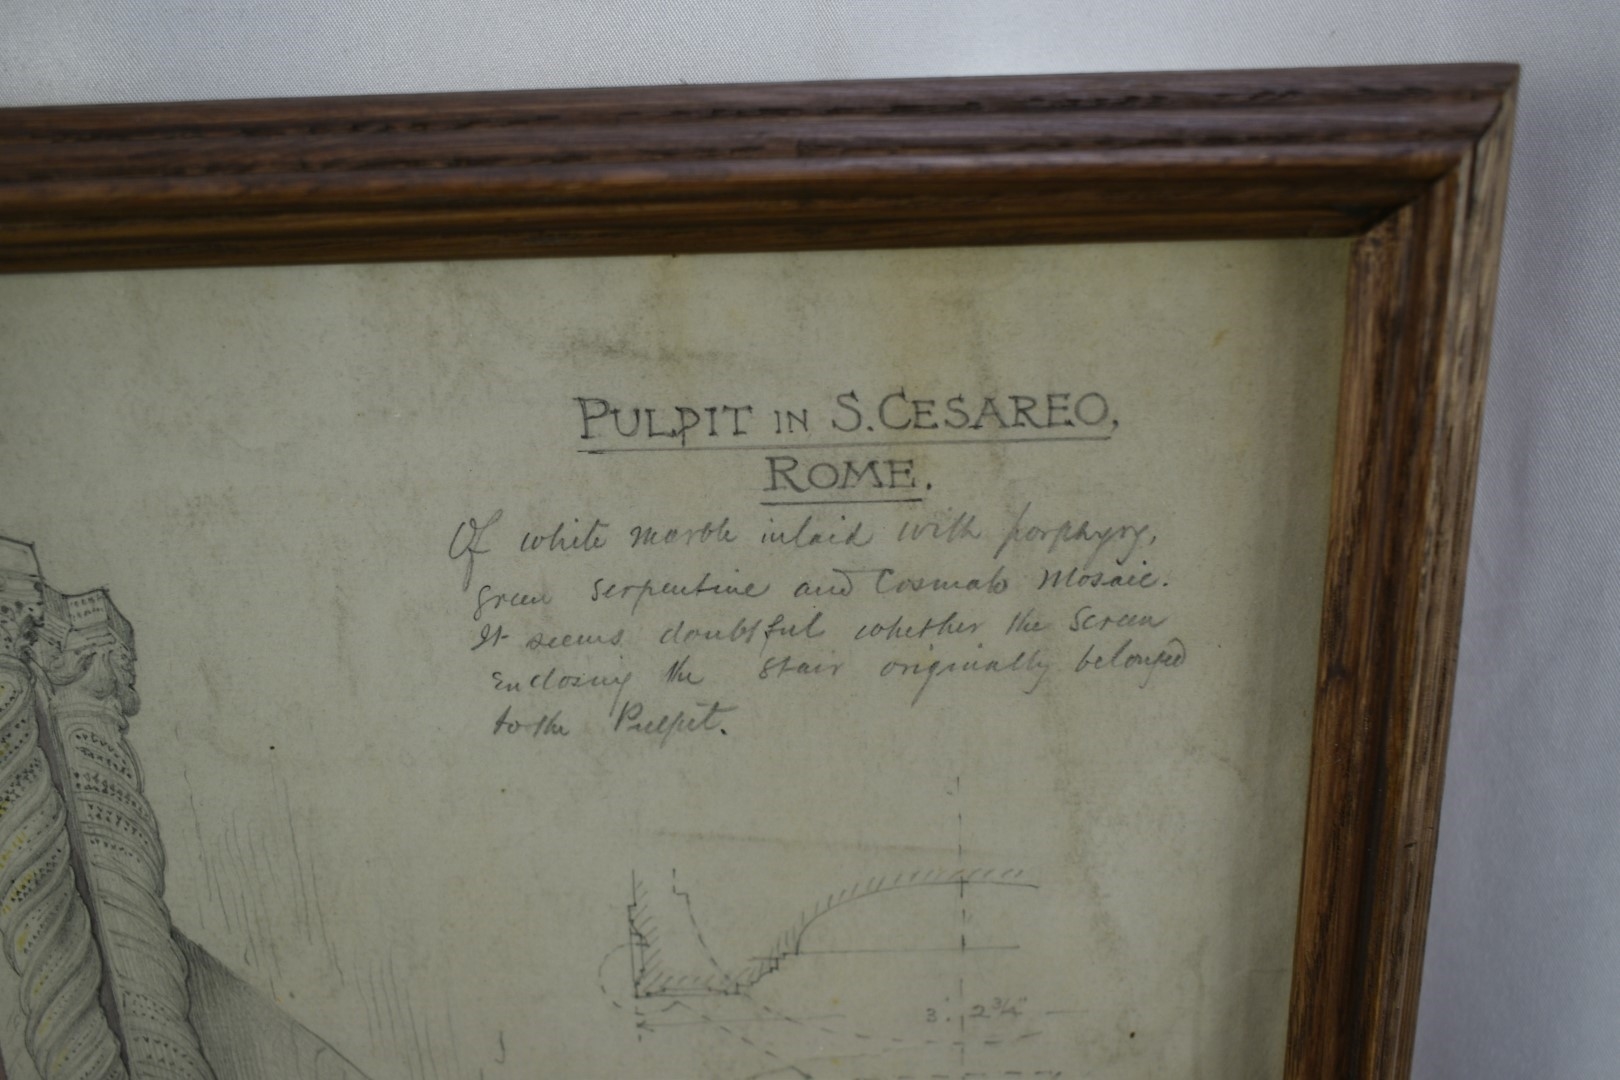 PULPIT IN S. CESAREO,
ROME.
Of white marble inlaid with porphyry,
green serpentine and Cosmato Mosaic.
It seems doubtful whether the Screen
enclosing the Stair originally belonged
to the Pulpit.
3'. 2¾"